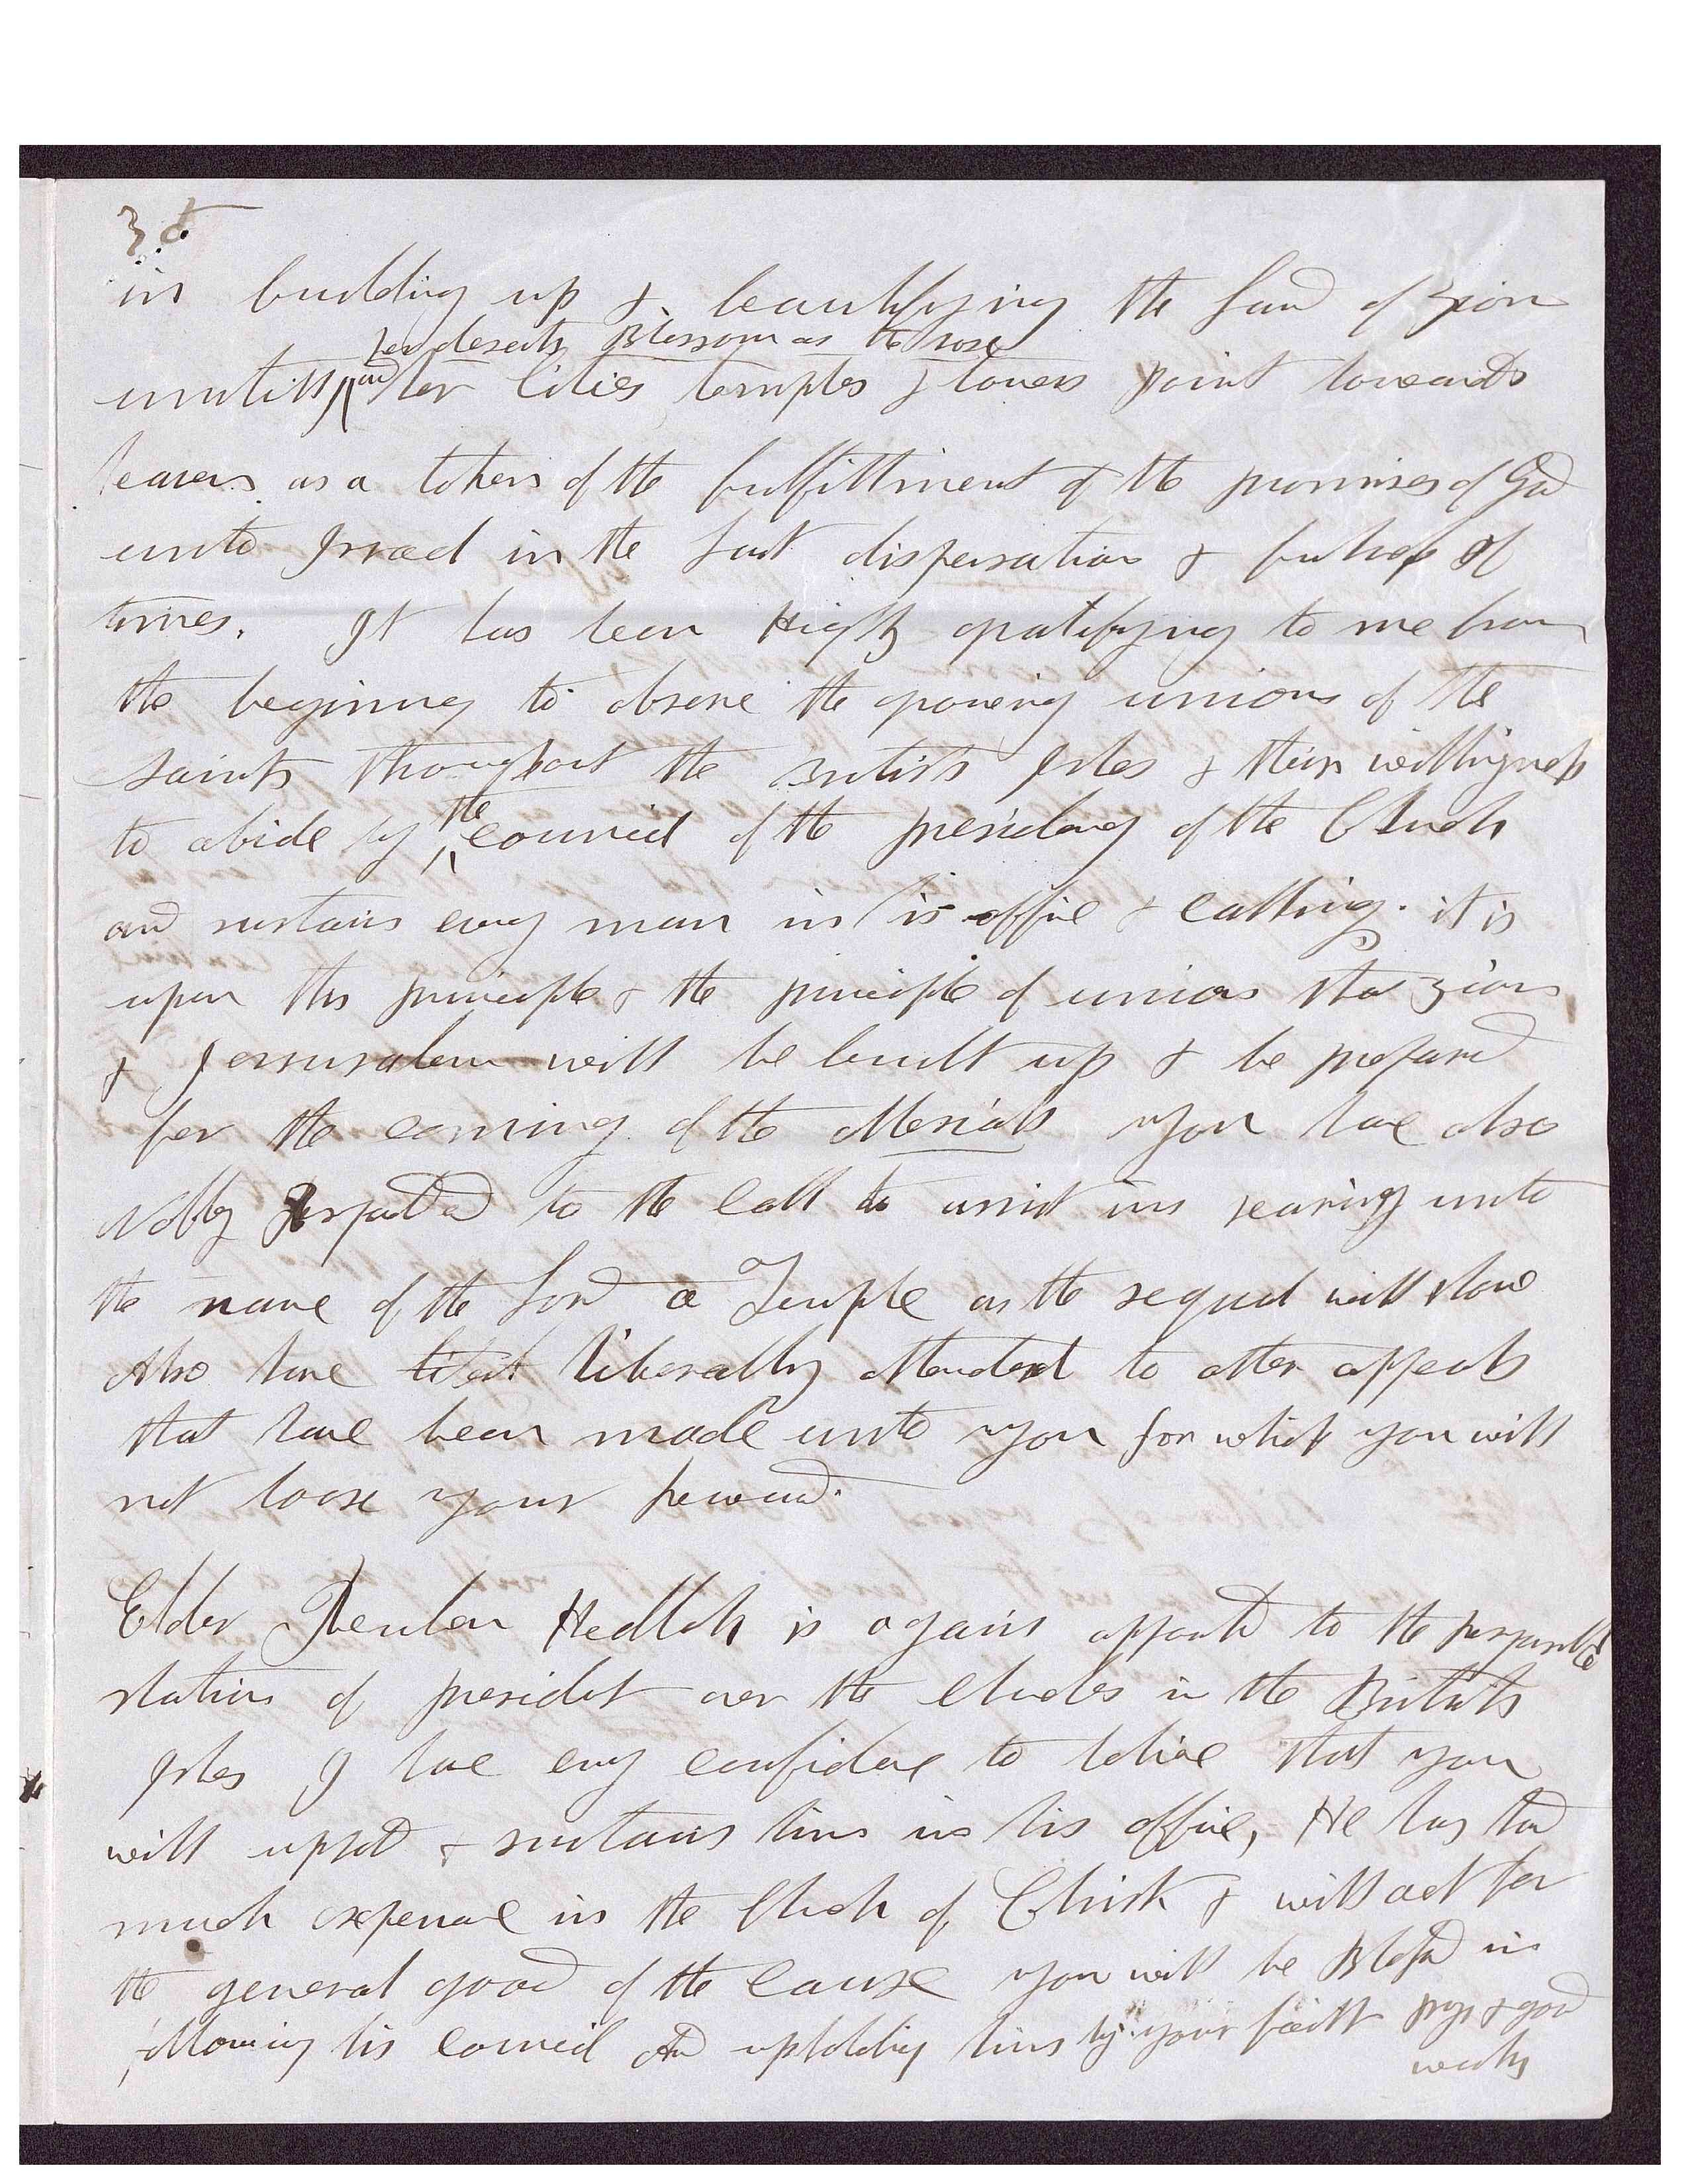 3d
in building up & beautifying the land of zion
her deserts Blossom as the rose
untill and her Cities temples & towers point towards
heaven as a token of the fulfillment of the promises of God
unto Israel in the last dispensation & fulness of
times. It has been Highly gratifying to me from
the begining to observe the growing union of the
saints throughout the British Isles & their willingness
the
to abide by council of the presidency of the Church
and sustain evry man in his office & calling. it is
upon this principle & the principle of union that zion
& Jerrusalem will be built up & be prepared
for the coming of the Mesiah you have also
nobly responded to the call to assist in rearing unto
the name of the Lord a Temple as the sequel will show
Also have liberally attended to other appeals
that have been made unto you for which you will
not loose your reward.
Elder Reuben Hedlock is again appointed to the responsible
station of president over the Churches in the British
Isles I have evry confidence to believe that you
will uphold & sustain him in his office, He has had
much experience in the Church of Christ & will act for
the general good of the cause you will be Blessed in
following his council and upholding him by your faith prayers & good
works